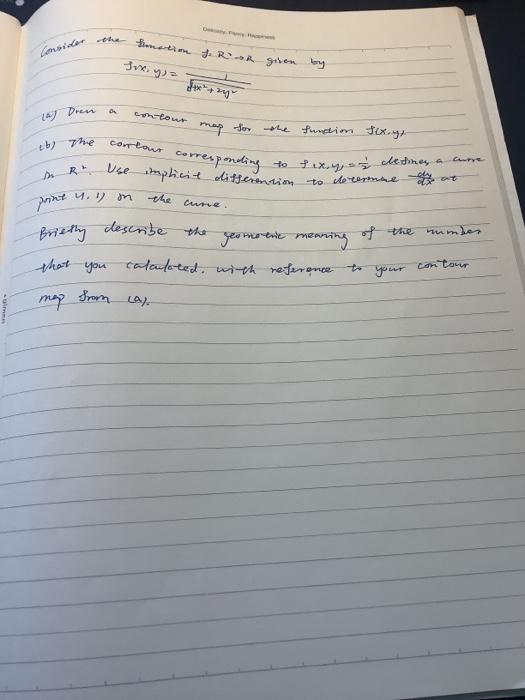 Delicacy, Fancy, Happiness
Consider the function f: R²→R given by
f(x, y) = 1
√1+x²+2y²
(a) Draw a contour map for the function f(x,y)
(b) The contour corresponding to f(x,y) = 1/2 defines a curve
in R². Use implicit differention to determine dy/dx at
point (1, 1) on the curve.
Briefly describe the geometric meaning of the number
that you calculated. with reference to your contour
map from (a).